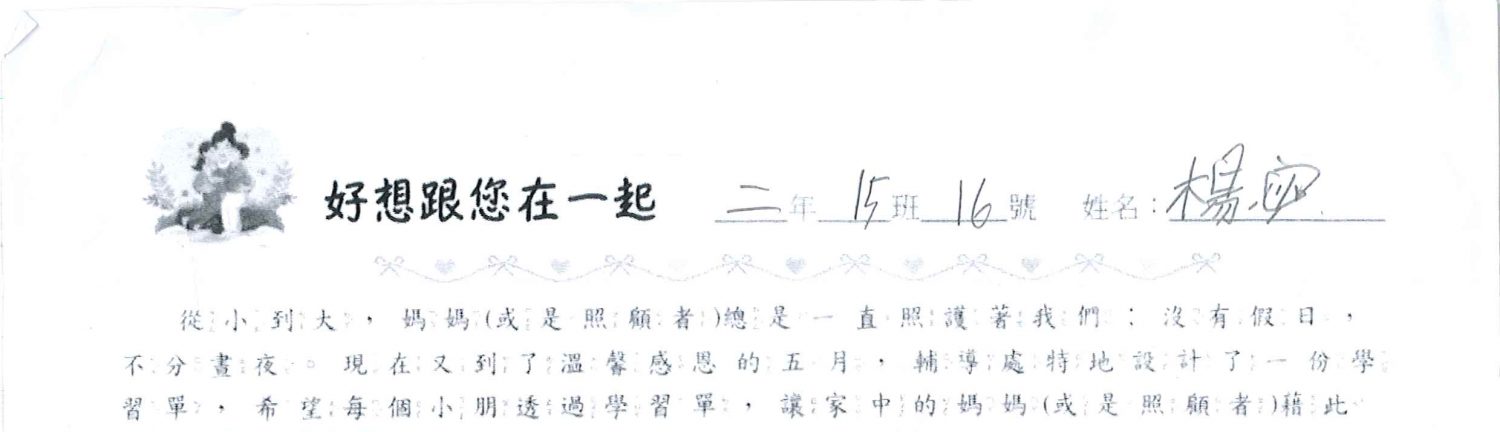 好想跟您在一起 二年15班16號 姓名：楊
從小到大，媽媽(或是照顧者)總是一直照護著我們：沒有假日，
不分晝夜。現在又到了溫馨感恩的五月，輔導處特地設計了一份學
習單，希望每個小朋透過學習單，讓家中的媽媽(或是照顧者)藉此